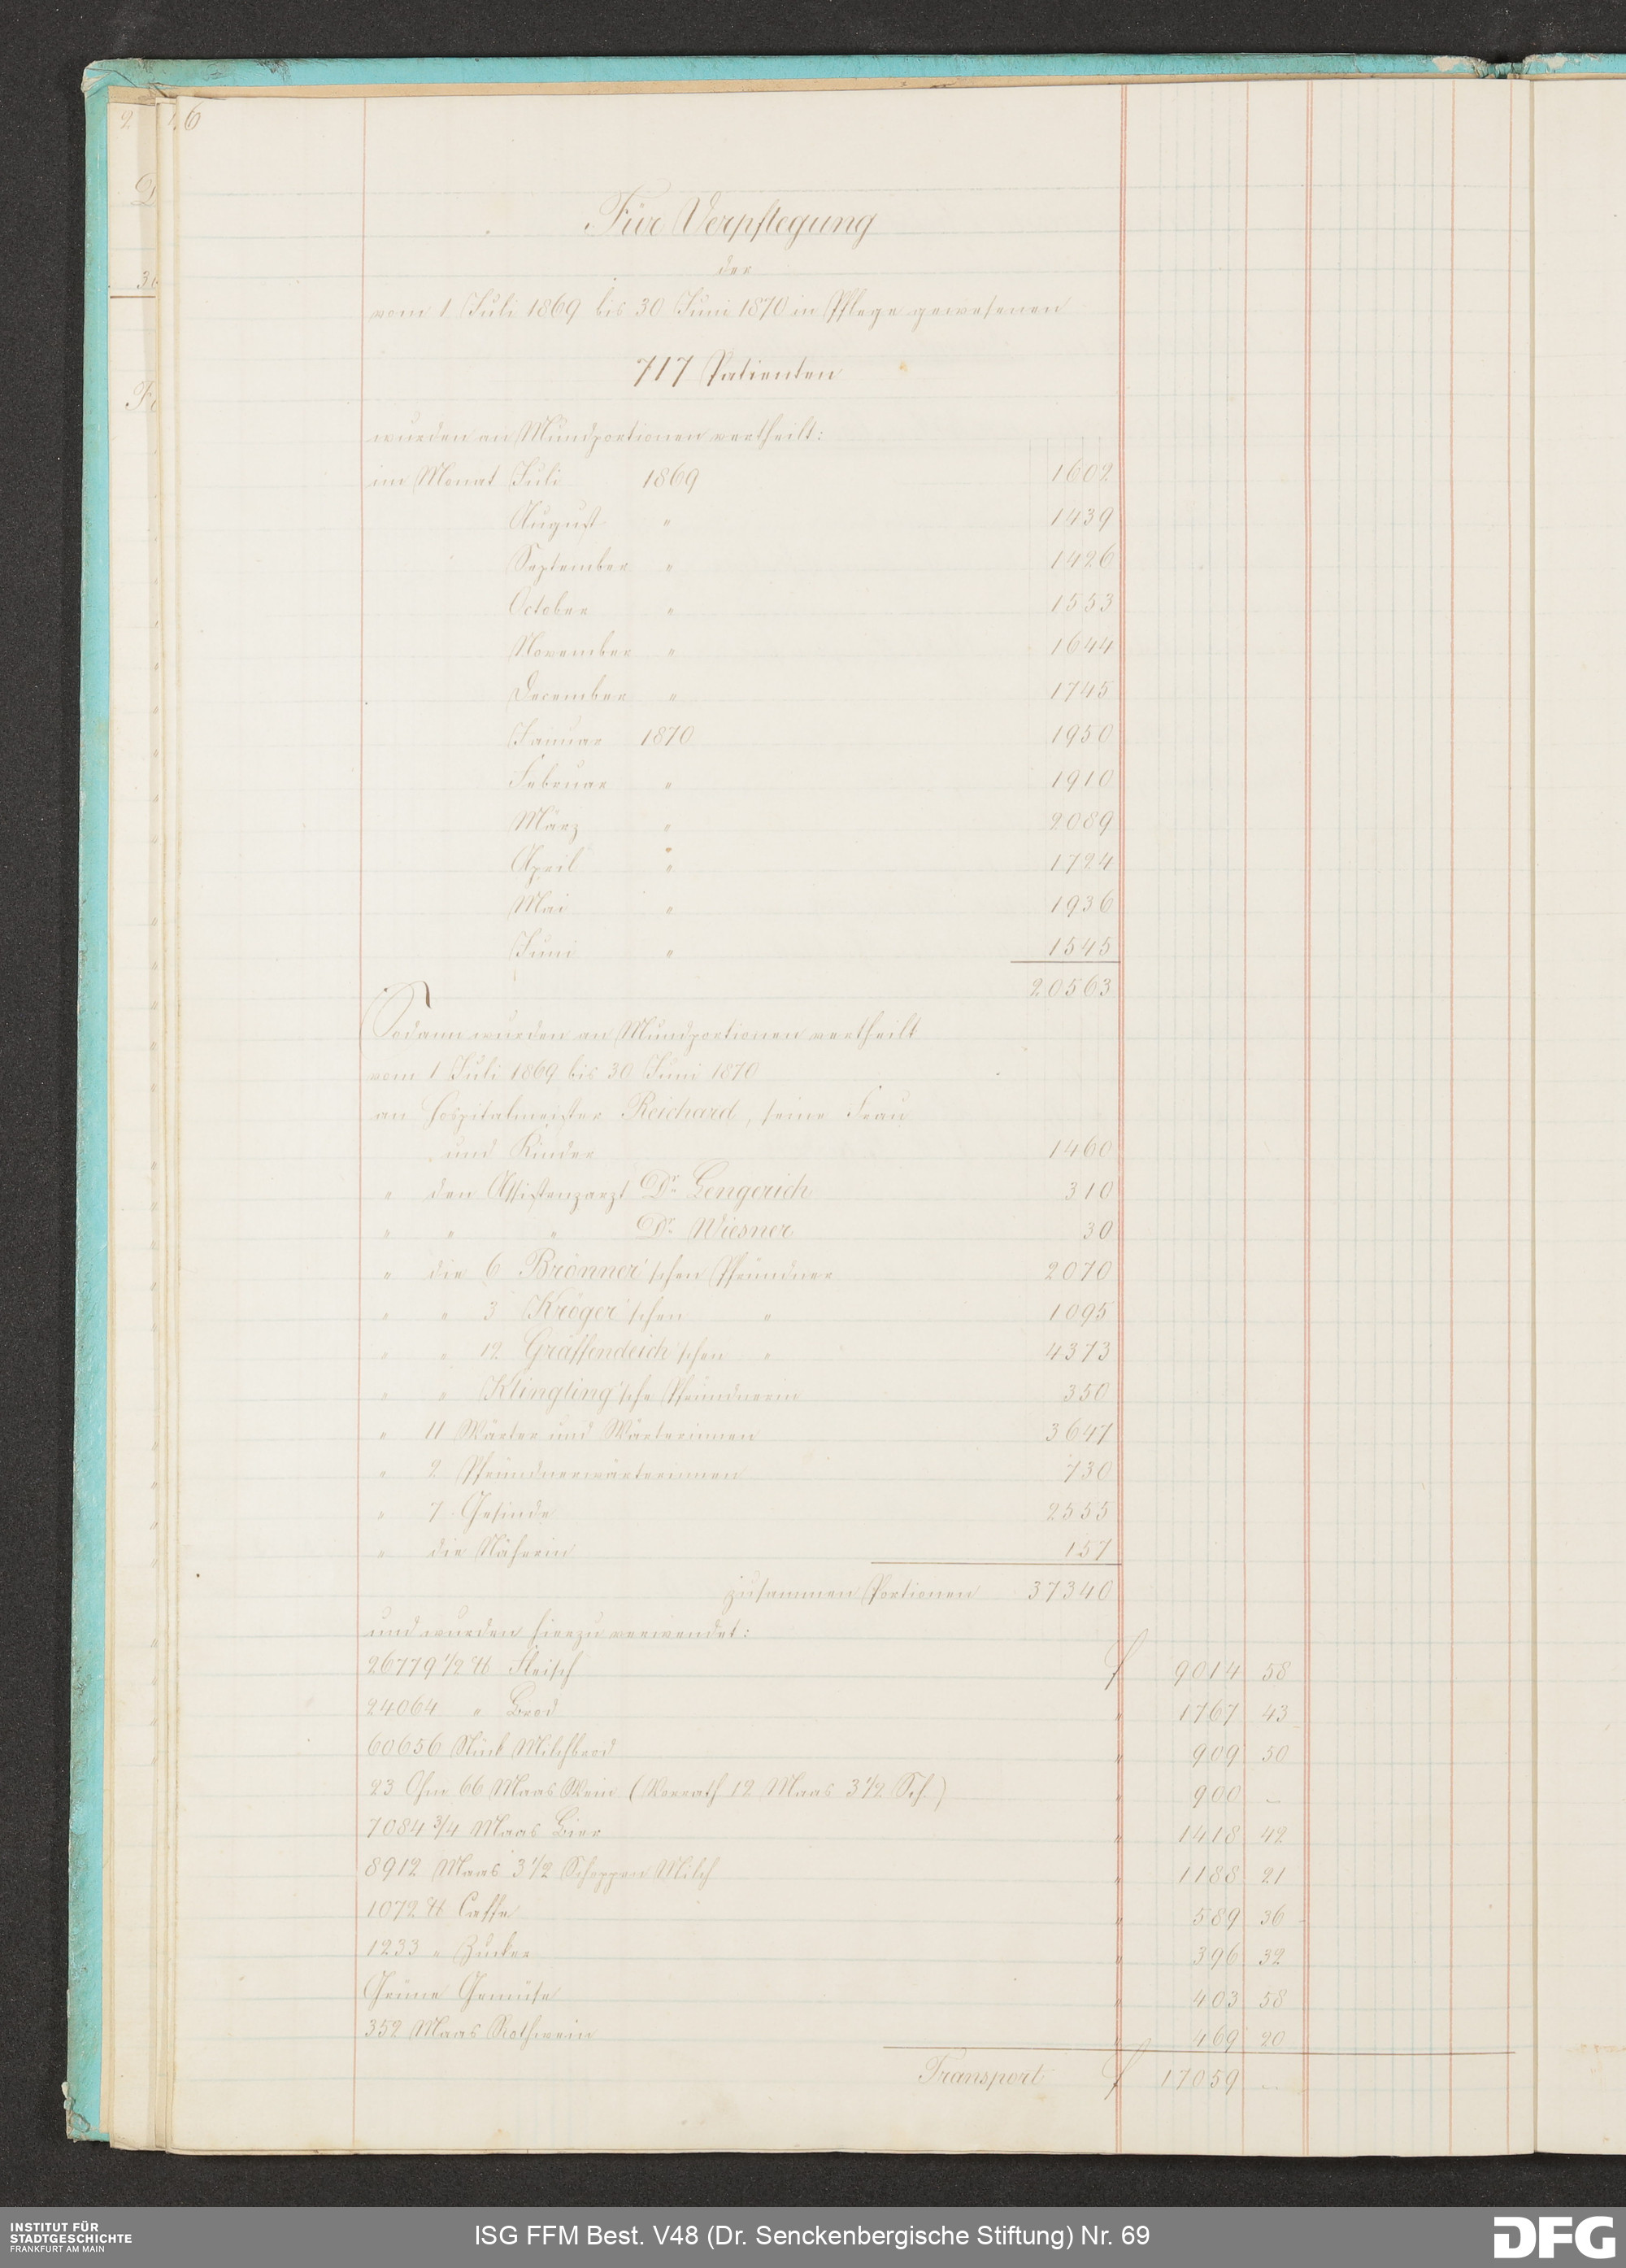 46
Für Verpflegung
der
vom 1 Juli 1869 bis 30 Juni 1870 in Pflege gewesenen
717 Patienten
wurden an Mundportionen vertheilt:
im Monat Juli 1869 1602
August " 1439
September " 1426
October " 1553
November " 1644
December " 1745
Januar 1870 1950
Februar " 1910
März " 2089
April " 1724
Mai " 1936
Juni " 1545
20563
Sodann wurden an Mundportionen vertheilt
vom 1 Juli 1869 bis 30 Juni 1870
an Hospitalmeister Reichard, seine Frau
und Kinder 1460
" den Assistenzarzt Dr. Lengerich 310
" " " Dr. Wiesner 30
" die 6 Brönner'schen Pfründner 2070
" " 3 Kröger'schen " 1095
" " 12 Gräffendeich'schen " 4373
" " Klingling'sche Pfründnerin 350
" 11 Wärter und Wärterinnen 3647
" 2 Pfründnerwärterinnen 730
" 7 Gesinde 2555
" die Näherin 157
zusammen Portionen 37340
und wurden hierzu verwendet:
26779 1/2 ℔ Fleisch f 9014 58
24064 " Brod " 1767 43
60656 Stück Milchbrod " 909 50
23 Ohm 66 Maas Wein (Vorrath 12 Maas 3 1/2 Sch.) " 900 —
7084 3/4 Maas Bier " 1418 42
8912 Maas 3 1/2 Schoppen Milch " 1188 21
1072 ℔ Caffe " 589 36
1233 " Zucker " 396 32
Grüne Gemüse " 403 58
352 Maas Rothwein " 469 20
Transport f 17059 —
INSTITUT FÜR
STADTGESCHICHTE
FRANKFURT AM MAIN
ISG FFM Best. V48 (Dr. Senckenbergische Stiftung) Nr. 69
DFG